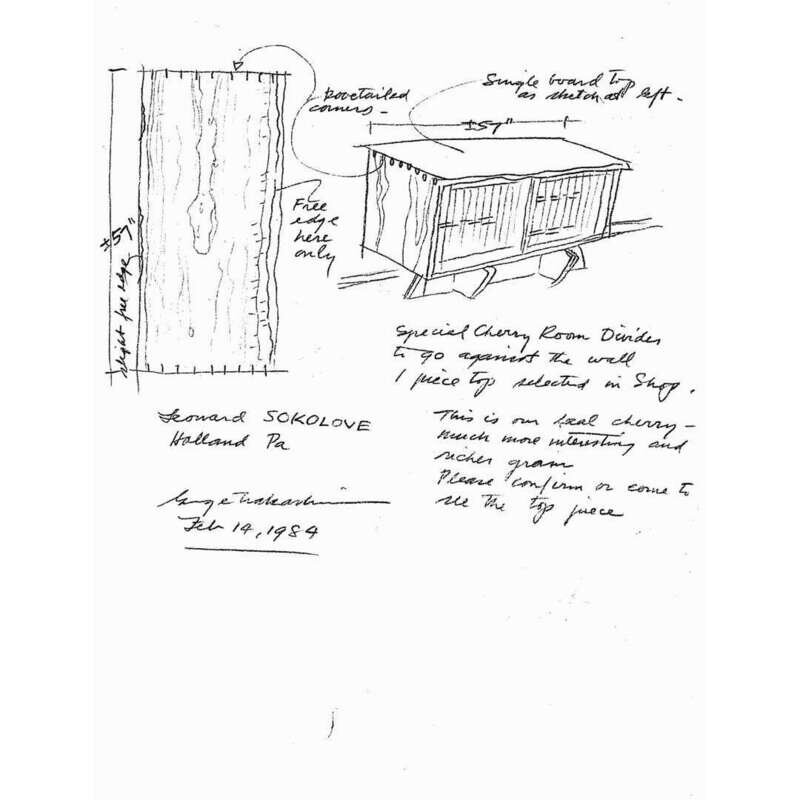 Dovetailed
corners -
Single board top
as sketch at left.
±57"
Free
edge
here
only
±57"
slight free edge
Special Cherry Room Divider
to go against the wall
1 piece top selected in Shop.
Leonard SOKOLOVE
Holland Pa
This is our local cherry -
much more interesting and
richer grain
Please confirm or come to
see the top piece
George Nakashima
Feb 14, 1984